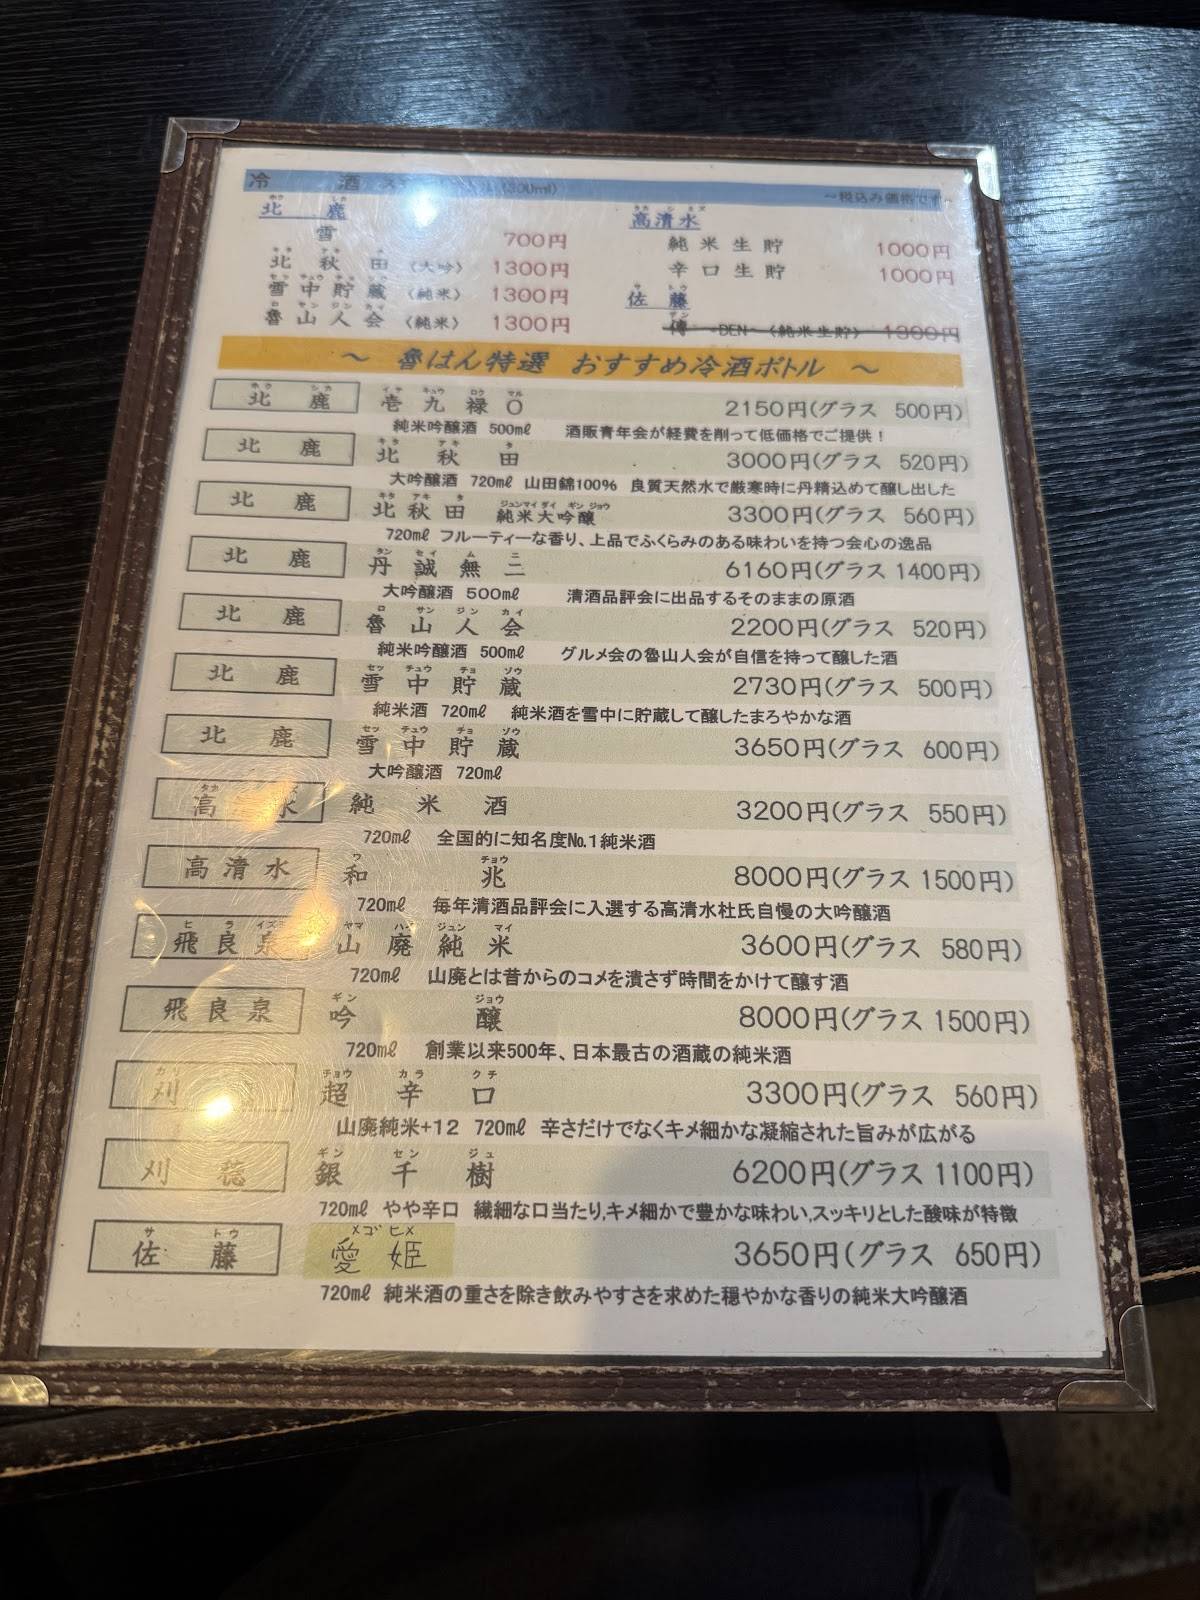 冷 酒 (300ml) ～税込み価格です～
ホク シカ
北 鹿
雪 700円
キタ アキ タ
北 秋 田 〈大吟〉 1300円
セッ チュウ チョ ゾウ
雪中貯蔵 〈純米〉 1300円
ロ サン ジン カイ
魯山人会 〈純米〉 1300円
タカ シ ミズ
高清水
純米生貯 1000円
辛口生貯 1000円
サ トウ
佐 藤
デン
傳 -DEN- 〈純米生貯〉 1300円
～ 魯はん特選 おすすめ冷酒ボトル ～
ホク シカ イチ キュウ ロク マル
北 鹿 壱九禄〇 2150円(グラス 500円)
純米吟醸酒 500㎖ 酒販青年会が経費を削って低価格でご提供！
キタ アキ タ
北 鹿 北 秋 田 3000円(グラス 520円)
大吟醸酒 720㎖ 山田錦100% 良質天然水で厳寒時に丹精込めて醸し出した
キタ アキ タ ジュンマイ ダイ ギン ジョウ
北 鹿 北秋田 純米大吟醸 3300円(グラス 560円)
720㎖ フルーティーな香り、上品でふくらみのある味わいを持つ会心の逸品
タン セイ ム ニ
北 鹿 丹誠無二 6160円(グラス 1400円)
大吟醸酒 500㎖ 清酒品評会に出品するそのままの原酒
ロ サン ジン カイ
北 鹿 魯山人会 2200円(グラス 520円)
純米吟醸酒 500㎖ グルメ会の魯山人会が自信を持って醸した酒
セッ チュウ チョ ゾウ
北 鹿 雪中貯蔵 2730円(グラス 500円)
純米酒 720㎖ 純米酒を雪中に貯蔵して醸したまろやかな酒
セッ チュウ チョ ゾウ
北 鹿 雪中貯蔵 3650円(グラス 600円)
大吟醸酒 720㎖
高清水 純 米 酒 3200円(グラス 550円)
720㎖ 全国的に知名度№1純米酒
ワ チョウ
高清水 和 兆 8000円(グラス 1500円)
720㎖ 毎年清酒品評会に入選する高清水杜氏自慢の大吟醸酒
ヒ ラ イズミ ヤマ ハイ ジュン マイ
飛良泉 山廃純米 3600円(グラス 580円)
720㎖ 山廃とは昔からのコメを潰さず時間をかけて醸す酒
ギン ジョウ
飛良泉 吟 醸 8000円(グラス 1500円)
720㎖ 創業以来500年、日本最古の酒蔵の純米酒
カリ チョウ カラ クチ
刈 超 辛 口 3300円(グラス 560円)
山廃純米+12 720㎖ 辛さだけでなくキメ細かな凝縮された旨みが広がる
ギン セン ジュ
刈 穂 銀 千 樹 6200円(グラス 1100円)
720㎖ やや辛口 繊細な口当たり,キメ細かで豊かな味わい,スッキリとした酸味が特徴
サ トウ メゴ ヒメ
佐 藤 愛 姫 3650円(グラス 650円)
720㎖ 純米酒の重さを除き飲みやすさを求めた穏やかな香りの純米大吟醸酒